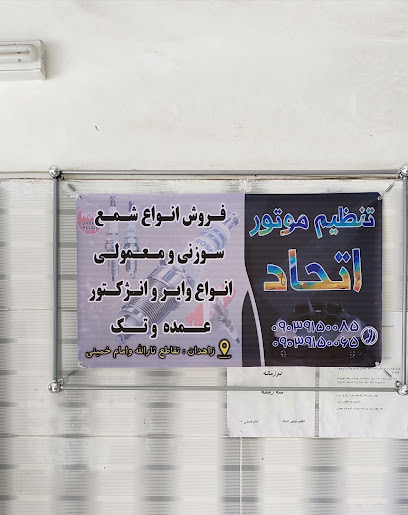 تنظیم موتور
اتحاد
۰۹۰۳۹۱۵۰۰۸۵
۰۹۰۳۹۱۵۰۰۶۵
فروش انواع شمع
سوزنی و معمولی
انواع وایر و انژکتور
عمده و تک
زاهدان : تقاطع ثارالله وامام خمینی